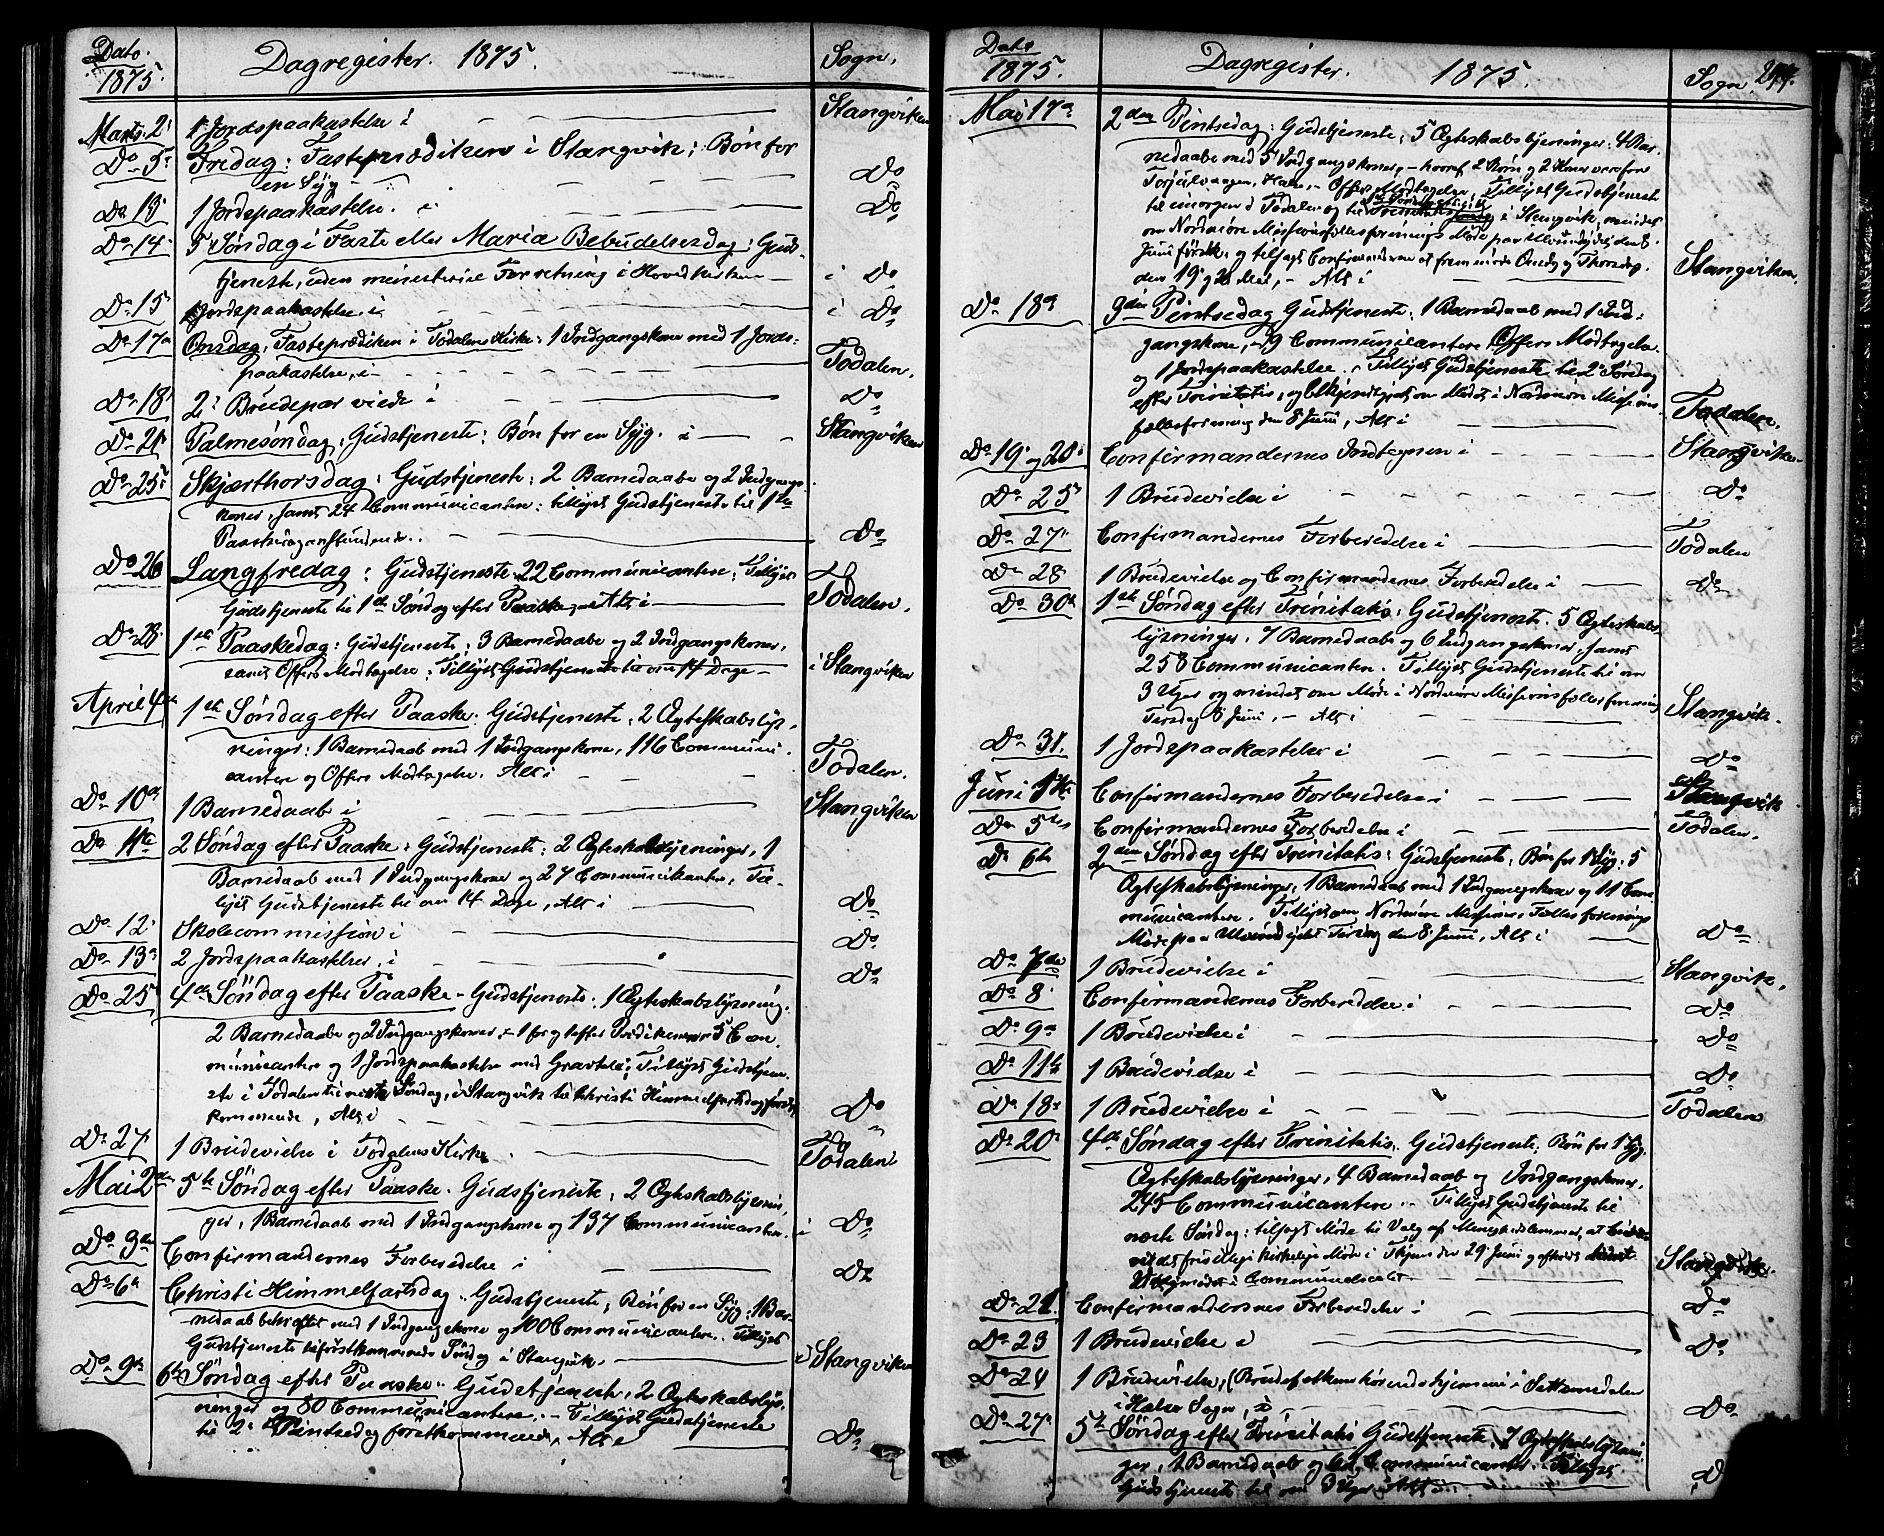 Dato.
1875.
Dagregister. 1875.
Sogn.
Marts 2. 1 Jordspaakastelse i Stangviken
Do 5 Fredag: Fasteprædiken i Stangvik; Bøn for
en Syg - Do
Do 13. 1 Jordspaakastelse. i Do
Do 14. 5 Søndag i Faste eller Maria Bebudelsesdag: Guds-
tjeneste, uden ministeriel Forretning i Hovedkirken i Do
Do 15 1 Jordspaakastelse i i Do
Do 17 Onsdag, Fasteprædiken i Todalens Kirke: 1 Indgangskone med 1 Jords-
paakastelse, i Todalen.
Do 18 2 Brudepar viede i Do
Do 21 Palmesøndag, Gudstjeneste: Bøn for en Syg. i Stangviken
Do 25 Skjærthorsdag: Gudstjeneste: 2 Barnedaabe og 2 Indgangs-
koner, samt 24 Communicanter: tillyst Gudstjeneste til 1ste
Paaskedag Do
Do 26 Langfredag: Gudstjeneste 22 Communicanter; Tillyst
Gudstjeneste til 1ste Søndag efter Paaske Alt i Todalen.
Do 28. 1ste Paaskedag: Gudstjeneste; 3 Barnedaabe og 2 Indgangskoner,
samt Offers Modtagelse: Tillyst Gudstjeneste til om 14 Dage i Stangviken
April 4de 1ste Søndag efter Paaske. Gudstjeneste; 2 Ægteskabslys-
ninger: 1 Barnedaab med 1 Indgangskone, 116 Communi-
canter og Offers Modtagelse. Alt i Todalen.
Do 10de 1 Barnedaab i Stangviken
Do 11te 2 Søndag efter Paaske, Gudstjeneste: 2 Ægteskabslysninger, 1
Barnedaab med 1 Indgangskone og 27 Communicanter, Til-
lyst Gudstjeneste til om 14 Dage, Alt i Do
Do 12. Skolecommission i Do
Do 13 2 Jordspaakastelser, i Do
Do 25 4de Søndag efter Paaske - Gudstjeneste: 1 Ægteskabslysning.
2 Barnedaabe og 2 Indgangskoner, 1 for og 1 efter Prædikenen 5 Com-
municanter og 1 Jordspaakastelse med Gravtale; Tillyst Gudstjene-
ste i Todalen til næste Søndag, i Stangvik til Christi Himmelfartsdag førstk
kommende, Alt i Do
Do 27. 1 Brudevielse i Todalens Kirke Todalen
Mai 2den 5te Søndag efter Paaske. Gudstjeneste, 2 Ægteskabslysnin-
ger, 1 Barnedaab med 1 Indgangskone og 137 Communicanter. i Do
Do 3die Confirmandernes Forberedelse i Do
Do 6te Christi Himmelfartsdag. Gudstjeneste; Bøn for en Syg: 1 Bar-
nedaab bekræftet med 1 Indgangskone og 100 Communicanter. Tillyst
Gudstjeneste til førstkommende Søndag i Stangvik. i Stangviken
Do 9de 6te Søndag efter Paaske. Gudstjeneste, 2 Ægteskabslys-
ninger og 80 Communicantere. - Tillyst Gudstjeneste
til 2 Pintsedag førstkommende, Alt i Do
Dato
1875.
Dagregister. 1875.
Sogn.
Mai 17de 2den Pintsedag: Gudstjeneste; 5 Ægteskabslysninger: 4 Bar-
nedaabe med 5 Indgangskoner, hvoraf 2 Børn og 2 Koner vare fra
Halse, - Offers Modtagelse, Tillyst Gudstjeneste
til imorgen i Todalen og til i Stangvik, mindet
om Nordmøre Missionsfællesforenings Møde paa Ulvundeidet den 8.
Juni førstk. og tilsagt Confirmanderne at fremmøde Onsdag og Thorsdag
den 19 og 20 Mai, - Alt i Stangviken.
Do 18de Pintsedag Gudstjeneste; 1 Barnedaab med 1 Ind-
gangskone, 9 Communicantere Offers Modtagelse.
og 1 Jordspaakastelse. Tillyst Gudstjeneste til 2 Søndag
efter Trinitatis, og bekjendtgjort om Mødet i Nordmøre Missions-
fællesforening den 8 Juni, Alt i Todalen.
Do 19 og 20. Confirmandernes Indtegnen i Stangviken
Do 25 1 Brudevielse i Do
Do 27. Confirmandernes Forberedelse i Todalen
Do 28 1 Brudevielse og Confirmandernes Forberedelse i Do
Do 30te 1ste Søndag efter Trinitatis; Gudstjeneste. 5 Ægteskabs-
lysninger. 7 Barnedaabe og 6 Indgangskoner, samt
258 Communicanter. Tillyst Gudstjeneste til om
3 Uger og mindet om Møde i Nordmøre Missionsfællesforening
Tirsdag 8 Juni, - Alt i Stangvik.
Do 31. 1 Jordspaakastelse i Do
Juni 1ste Confirmandernes Forberedelse i Stangvik
Do 5te Confirmandernes Forberedelse i Todalen.
Do 6te 2den Søndag efter Trinitatis; Gudstjeneste; Bøn for 1 Syg: 5
Ægteskabslysninger, 1 Barnedaab med 1 Indgangskone og 11 Com-
municantere. Tillyst om Nordmøre Missions-Fællesforenings
Møde paa Ulvundeidet Tirsdag den 8 Juni, Alt i Do
Do 7de 1 Brudevielse i Stangvik.
Do 8. Confirmandernes Forberedelse i Do
Do 9de 1 Brudevielse i Do
Do 11te 1 Brudevielse i Do
Do 18 1 Brudevielse i Todalen
Do 20. 4de Søndag efter Trinitatis. Gudstjeneste; Bøn for 1 Syg.
Ægteskabslysninger, 4 Barnedaab og Indgangskoner,
245 Communicantere - Tillyst Gudstjeneste til
næste Søndag: tilsagt Møde til Valg af Menighedslemmer, at
ved det frivillige kirkelige Møde i den 29 Juni og
i Communelocalet Stangviken
Do 21. Confirmandernes Forberedelse i Do
Do 23 1 Brudevielse i Do
Do 24 1 Brudevielse, (Brudefolkene hørende hjemme i Settemsdalen
i Halse Sogn, i Do
Do 27. 5te Søndag efter Trinitatis Gudstjeneste, 7 Ægteskabslysnin-
ger, 1 Barnedaab og 62 Communicanter. Tillyst
Gudstjeneste til om 3 Uger Alt i D